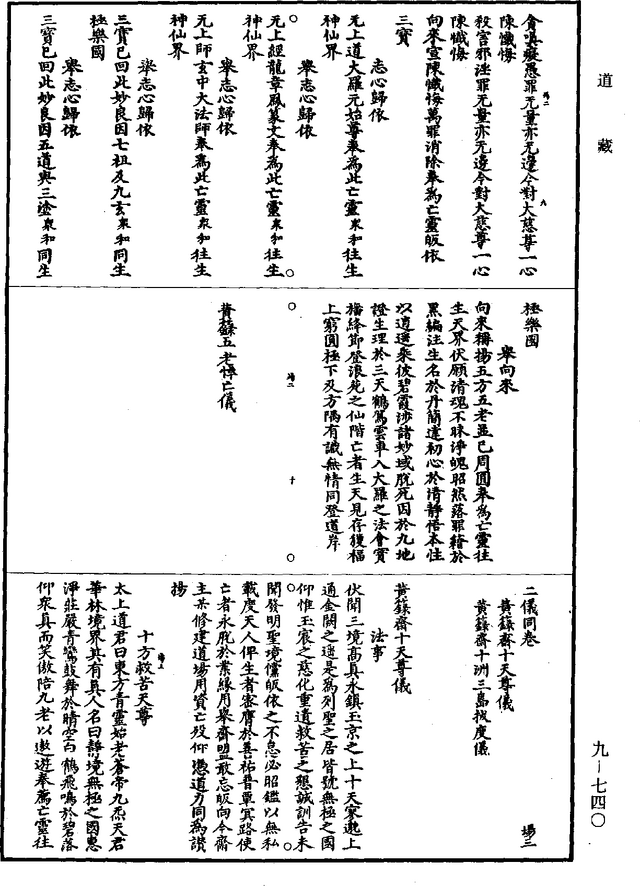 道藏
貪嗔癡愚罪无量亦无邊今對大慈尊一心
陳懺悔
殺害邪淫罪无量亦无邊今對大慈尊一心
陳懺悔
向來宣陳懺悔萬罪消除奉為亡靈皈依
三寶
志心歸依
无上道大羅元始尊奉為此亡靈衆和往生
神仙界
舉志心歸依
无上經龍章鳳篆文奉為此亡靈衆和往生
神仙界
舉志心歸依
无上師玄中大法師奉為此亡靈衆和往生
神仙界
舉志心歸依
三寶已回此妙良因七祖及九玄衆和同生
極樂國
舉志心歸依
三寶已回此妙良因五道與三塗衆和同生
極樂國
舉向來
向來稱揚五方五老並已周圓奉為亡靈往
生天界伏願清魂不昧淨魄昭然落罪籍於
黑編注生名於丹簡遣初心於清靜悟本性
以逍遥乘彼碧霞涉諸妙域脫死因於九地
證生理於三天鶴駕雲車入大羅之法會寶
旛絳節登浪苑之仙階亡者生天見存獲福
上窮圓極下及方隅有識無情同登道岸
黃籙五老悼亡儀
二儀同卷
場三
黃籙齋十天尊儀
黃籙齋十洲三島拔度儀
黃籙齋十天尊儀
法事
伏聞三境高真永鎮玉京之上十天眾聖上
通金闕之遥是為列聖之居皆號無極之國
仰惟玉宸之慈化重遣救苦之懇誠訓告未
聞發明聖境儻皈依之不怠必昭鑑以無私
載度天人俾生者密膺於善祐普覃冥路使
亡者永脫於業緣用舉齋盟敢忘皈向今齋
主某修建道場用資亡歿仰憑道力同為讚
揚
十方救苦天尊
太上道君曰東方青靈始老蒼帝九炁天君
華林境界其有真人名曰靜境無極之國惠
淨莊嚴青鸞鼓舞於晴空白鶴飛鳴於碧落
仰衆真而笑傲陪九老以遨遊奉薦亡靈往
九—七四〇